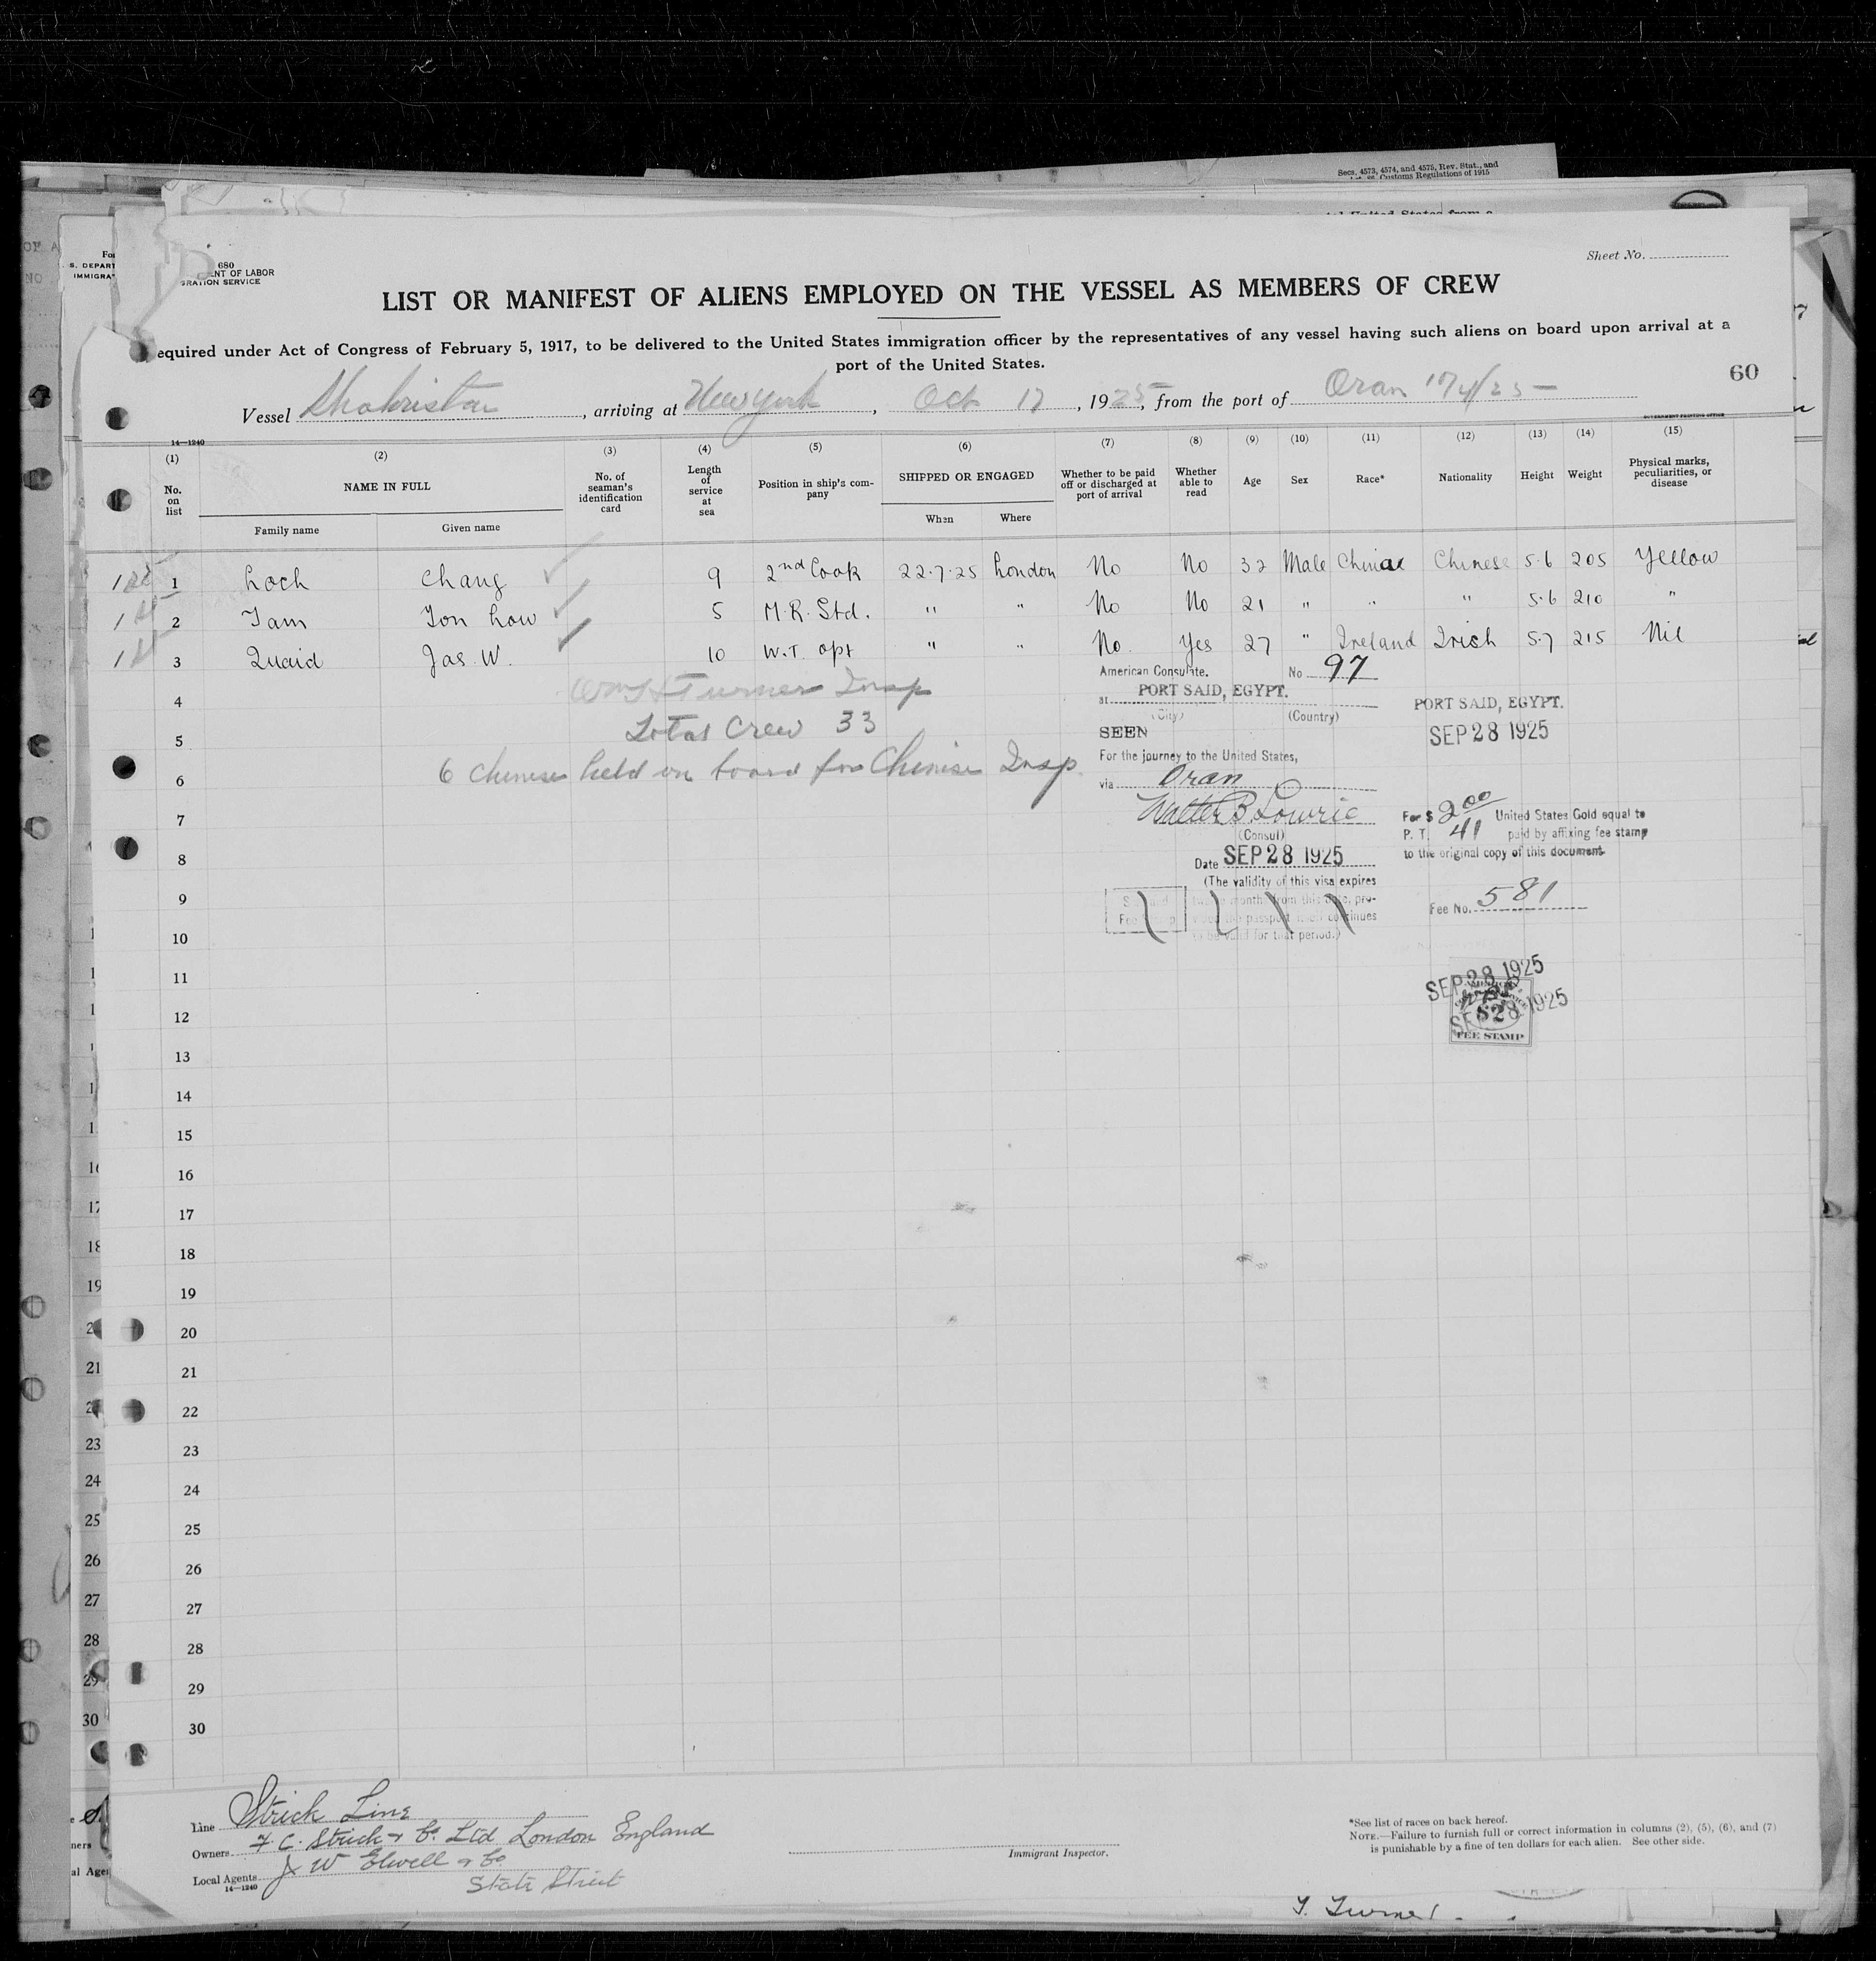 Secs. 4573, 4574, and 4575, Rev. Stat., and
Customs Regulations of 1915
680
ENT OF LABOR
GRATION SERVICE
Sheet No.
LIST OR MANIFEST OF ALIENS EMPLOYED ON THE VESSEL AS MEMBERS OF CREW
equired under Act of Congress of February 5, 1917, to be delivered to the United States immigration officer by the representatives of any vessel having such aliens on board upon arrival at a
port of the United States.
60
Vessel Shahristan, arriving at New York, Oct 17, 1925, from the port of Oran
14—1240
(1) (2) (3) (4) (5) (6) (7) (8) (9) (10) (11) (12) (13) (14) (15)
No. on list NAME IN FULL No. of seaman's identification card Length of service at sea Position in ship's company SHIPPED OR ENGAGED Whether to be paid off or discharged at port of arrival Whether able to read Age Sex Race* Nationality Height Weight Physical marks, peculiarities, or disease
Family name Given name When Where
1 Loch Chang 9 2nd Cook 22.7.25 London No No 32 Male Chinae Chinese 5.6 205 Yellow
2 Tam Ton how 5 M.R. Std. " " No No 21 " " " 5.6 210 "
3 Quaid Jas. W. 10 W.T. opt " " No. Yes 27 " Ireland Irish 5.7 215 Nil
4 Wm H Turner Insp
5 Total Crew 33
6 6 Chinese held on board for Chinese Insp.
7
8
9
10
11
12
13
14
15
16
17
18
19
20
21
22
23
24
25
26
27
28
29
30
American Consulate. No 97
at PORT SAID, EGYPT.
(City) (Country)
SEEN
For the journey to the United States,
via Oran
Walter B. Lowrie
(Consul)
Date SEP 28 1925
(The validity of this visa expires
PORT SAID, EGYPT.
SEP 28 1925
For $ 2.00 United States Gold equal to
P. T. 41 paid by affixing fee stamp
to the original copy of this document.
Fee No. 581
SEP 28 1925
SEP 28 1925
FEE STAMP
Line Strick Line
Owners F. C. Strick & Co. Ltd London England
Local Agents J W Elwell & Co.
14—1240
State Street
Immigrant Inspector.
*See list of races on back hereof.
NOTE.—Failure to furnish full or correct information in columns (2), (5), (6), and (7)
is punishable by a fine of ten dollars for each alien. See other side.